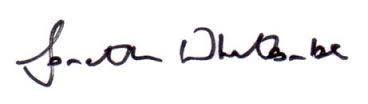 Jonathan Whitcombe